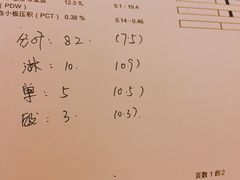 (PDW) 12.5 fL 9.1 - 19.4
血小板压积（PCT） 0.38 % 0.14 - 0.46
分叶: 82. (7.5)
淋: 10. (0.9)
单: 5 (0.5)
酸: 3. (0.3)
页数 1 的 2